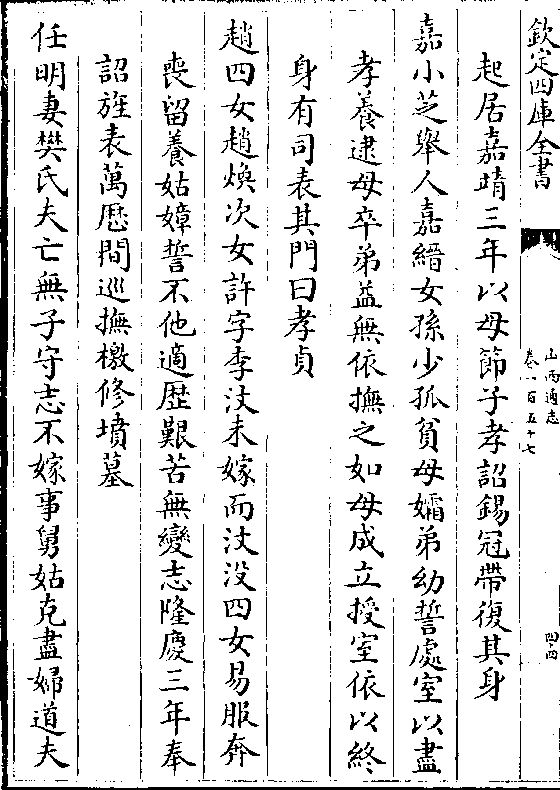 欽定四庫全書
山西通志
卷一百五十七
四四
起居嘉靖三年以母節子孝詔錫冠帶復其身
嘉小芝舉人嘉縉女孫少孤貧母孀弟幼誓處室以盡
孝養逮母卒弟益無依撫之如母成立授室依以終
身有司表其門曰孝貞
趙四女趙煥次女許字李汶未嫁而汶没四女易服奔
喪留養姑嫜誓不他適歴艱苦無變志隆慶三年奉
詔旌表萬歴間巡撫檄修墳墓
任明妻樊氏夫亡無子守志不嫁事舅姑克盡婦道夫